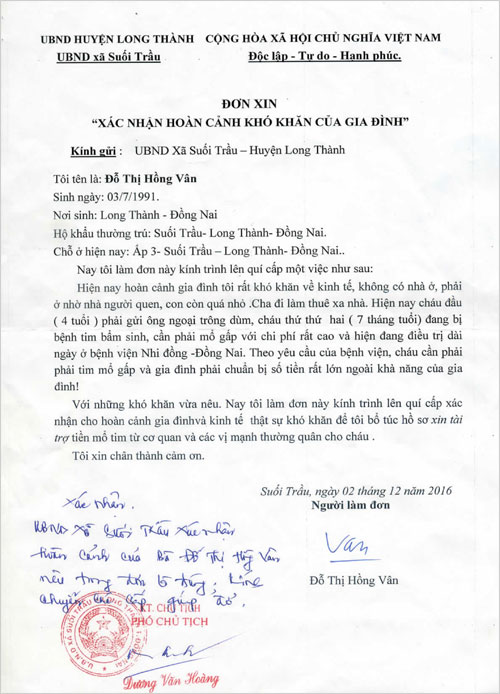 UBND HUYỆN LONG THÀNH CỘNG HÒA XÃ HỘI CHỦ NGHĨA VIỆT NAM
UBND xã Suối Trầu Độc lập - Tự do - Hạnh phúc.
ĐƠN XIN
“XÁC NHẬN HOÀN CẢNH KHÓ KHĂN CỦA GIA ĐÌNH”
Kính gửi : UBND Xã Suối Trầu – Huyện Long Thành
Tôi tên là: Đỗ Thị Hồng Vân
Sinh ngày: 03/7/1991.
Nơi sinh: Long Thành - Đồng Nai
Hộ khẩu thường trú: Suối Trầu- Long Thành- Đồng Nai.
Chỗ ở hiện nay: Ấp 3- Suối Trầu – Long Thành- Đồng Nai..
Nay tôi làm đơn này kính trình lên quí cấp một việc như sau:
Hiện nay hoàn cảnh gia đình tôi rất khó khăn về kinh tế, không có nhà ở, phải
ở nhờ nhà người quen, con còn quá nhỏ .Cha đi làm thuê xa nhà. Hiện nay cháu đầu
( 4 tuổi ) phải gửi ông ngoại trông dùm, cháu thứ thứ hai ( 7 tháng tuổi) đang bị
bệnh tim bẩm sinh, cần phải mổ gấp với chi phí rất cao và hiện đang điều trị dài
ngày ở bệnh viện Nhi đồng -Đồng Nai. Theo yêu cầu của bệnh viện, cháu cần phải
phải tim mổ gấp và gia đình phải chuẩn bị số tiền rất lớn ngoài khả năng của gia
đình!
Với những khó khăn vừa nêu. Nay tôi làm đơn này kính trình lên quí cấp xác
nhận cho hoàn cảnh gia đìnhvà kinh tế thật sự khó khăn để tôi bổ túc hồ sơ xin tài
trợ tiền mổ tim từ cơ quan và các vị mạnh thường quân cho cháu .
Tôi xin chân thành cảm ơn.
Suối Trầu, ngày 02 tháng 12 năm 2016
Người làm đơn
Xác nhận.
UBND Xã Suối Trầu xác nhận
hoàn cảnh của bà Đỗ Thị Hồng Vân
nêu trong đơn là đúng. Kính
chuyển cấp giúp đỡ.
Vân
Đỗ Thị Hồng Vân
KT. CHỦ TỊCH
PHÓ CHỦ TỊCH
U.B.N.D XÃ SUỐI TRẦU
Dương Văn Hoàng